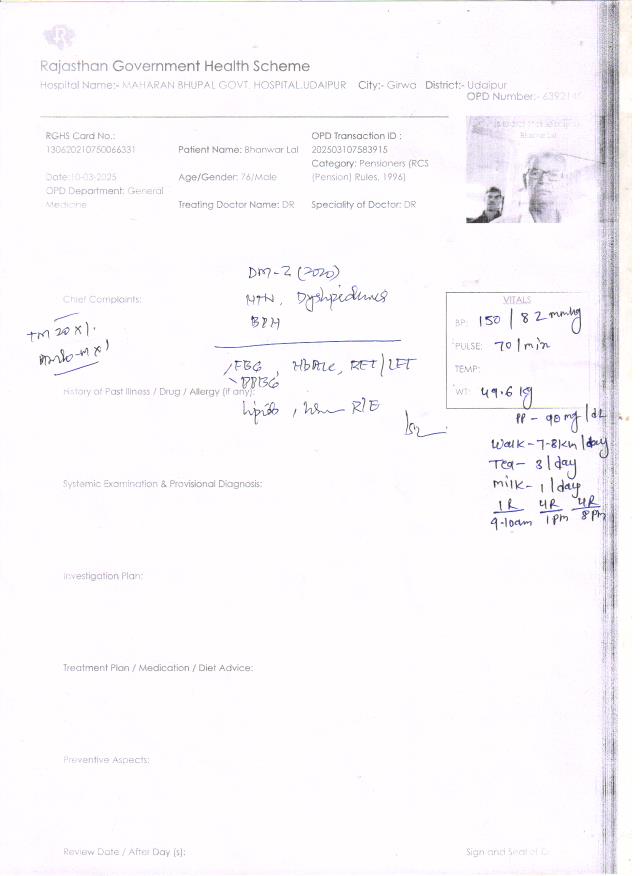 Rajasthan Government Health Scheme
Hospital Name:- MAHARAN BHUPAL GOVT. HOSPITAL,UDAIPUR City:- Girwa District:- Udaipur
OPD Number:-
RGHS Card No.:
130620210750066331
Date:10-03-2025
OPD Department: General
Medicine
Patient Name: Bhanwar Lal
Age/Gender: 76/Male
Treating Doctor Name: DR
OPD Transaction ID :
202503107583915
Category: Pensioners (RCS
(Pension) Rules, 1996)
Speciality of Doctor: DR
Bhanwar Lal
DM-2 (2020)
HTN,
BPH
Chief Complaints:
TM 20 X 1
FBG, HbA1c, RFT/LFT
PPBG
History of Past Illness / Drug / Allergy (if any):
R/E
VITALS
BP: 150 / 82 mmHg
PULSE: 70 / min
TEMP:
WT: 49.6 Kg
PP - 90 mg/dL
Walk - 7-8 Km/day
Tea - 3/day
Milk - 1/day
1R 4R 4R
9-10am 1pm 8pm
Systemic Examination & Provisional Diagnosis:
Investigation Plan:
Treatment Plan / Medication / Diet Advice:
Preventive Aspects:
Review Date / After Day (s):
Sign and Seal of